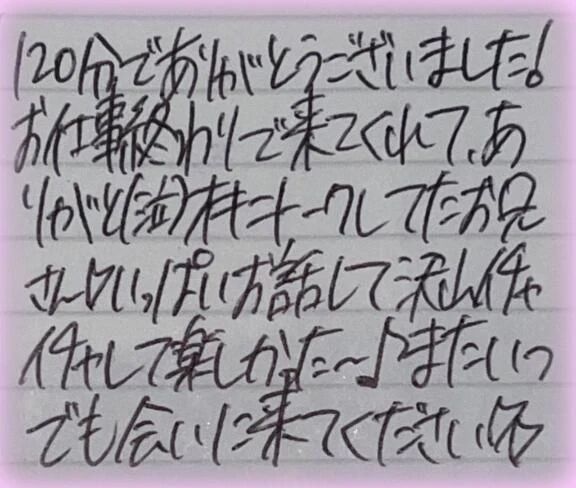 120分でありがとうございました!
お仕事終わりで来てくれて、あ
りがと(泣)オキニトークしてたお兄
さんといっぱいお話して沢山イチャ
イチャして楽しかった〜♪またいつ
でも会いに来てください